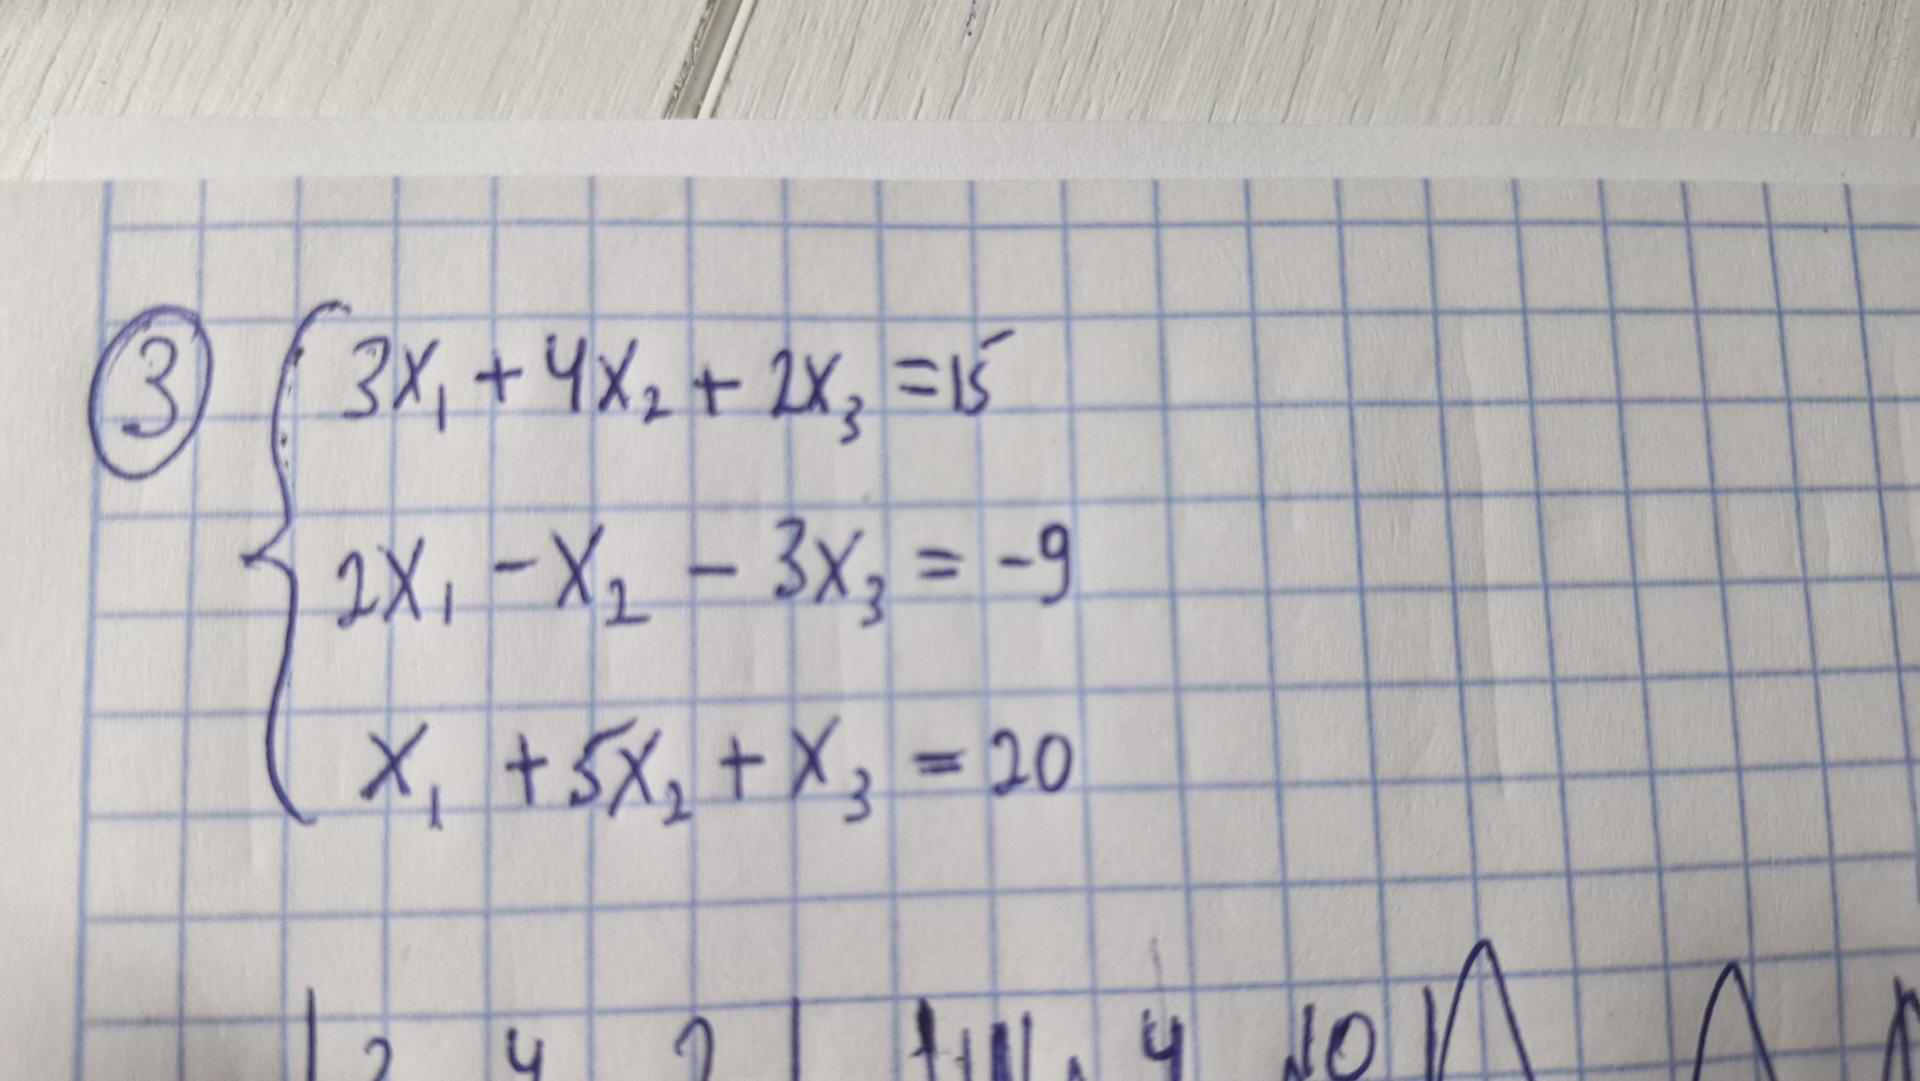 ③ 3x₁ + 4x₂ + 2x₃ = 15
2x₁ - x₂ - 3x₃ = -9
x₁ + 5x₂ + x₃ = 20